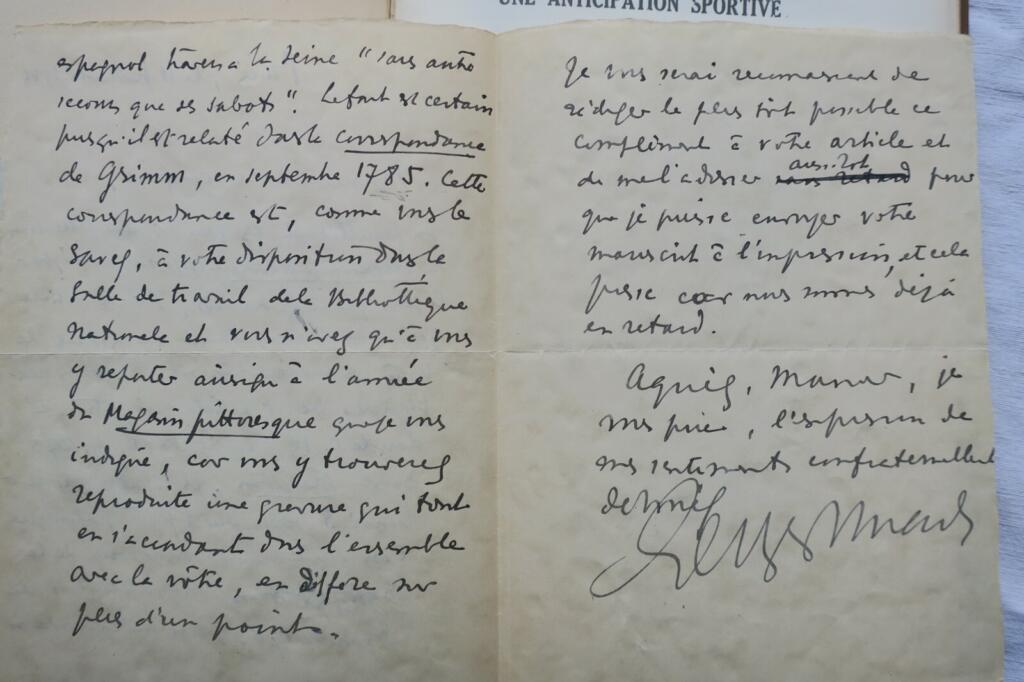 UNE ANTICIPATION SPORTIVE
espagnol traversa la Seine "sans autre
secours que ses sabots". Le fait est certain
puisqu'il est relaté dans la correspondance
de Grimm, en septembre 1785. Cette
correspondance est, comme vous le
savez, à votre disposition dans la
Salle de travail de la Bibliothèque
Nationale et vous n'avez qu'à vous
y reporter ainsi qu'à l'année
du Magasin pittoresque que je vous
indique, car vous y trouverez
reproduite une gravure qui tout
en s'accordant dans l'ensemble
avec la vôtre, en diffère sur
plus d'un point.
Je vous serai reconnaissant de
rédiger le plus tôt possible ce
complément à votre article et
de me l'adresser aussitôt sans retard pour
que je puisse envoyer votre
manuscrit à l'impression, et cela
presse car nous sommes déjà
en retard.
Agréez, Monsieur, je
vous prie, l'expression de
mes sentiments confraternellement
dévoués